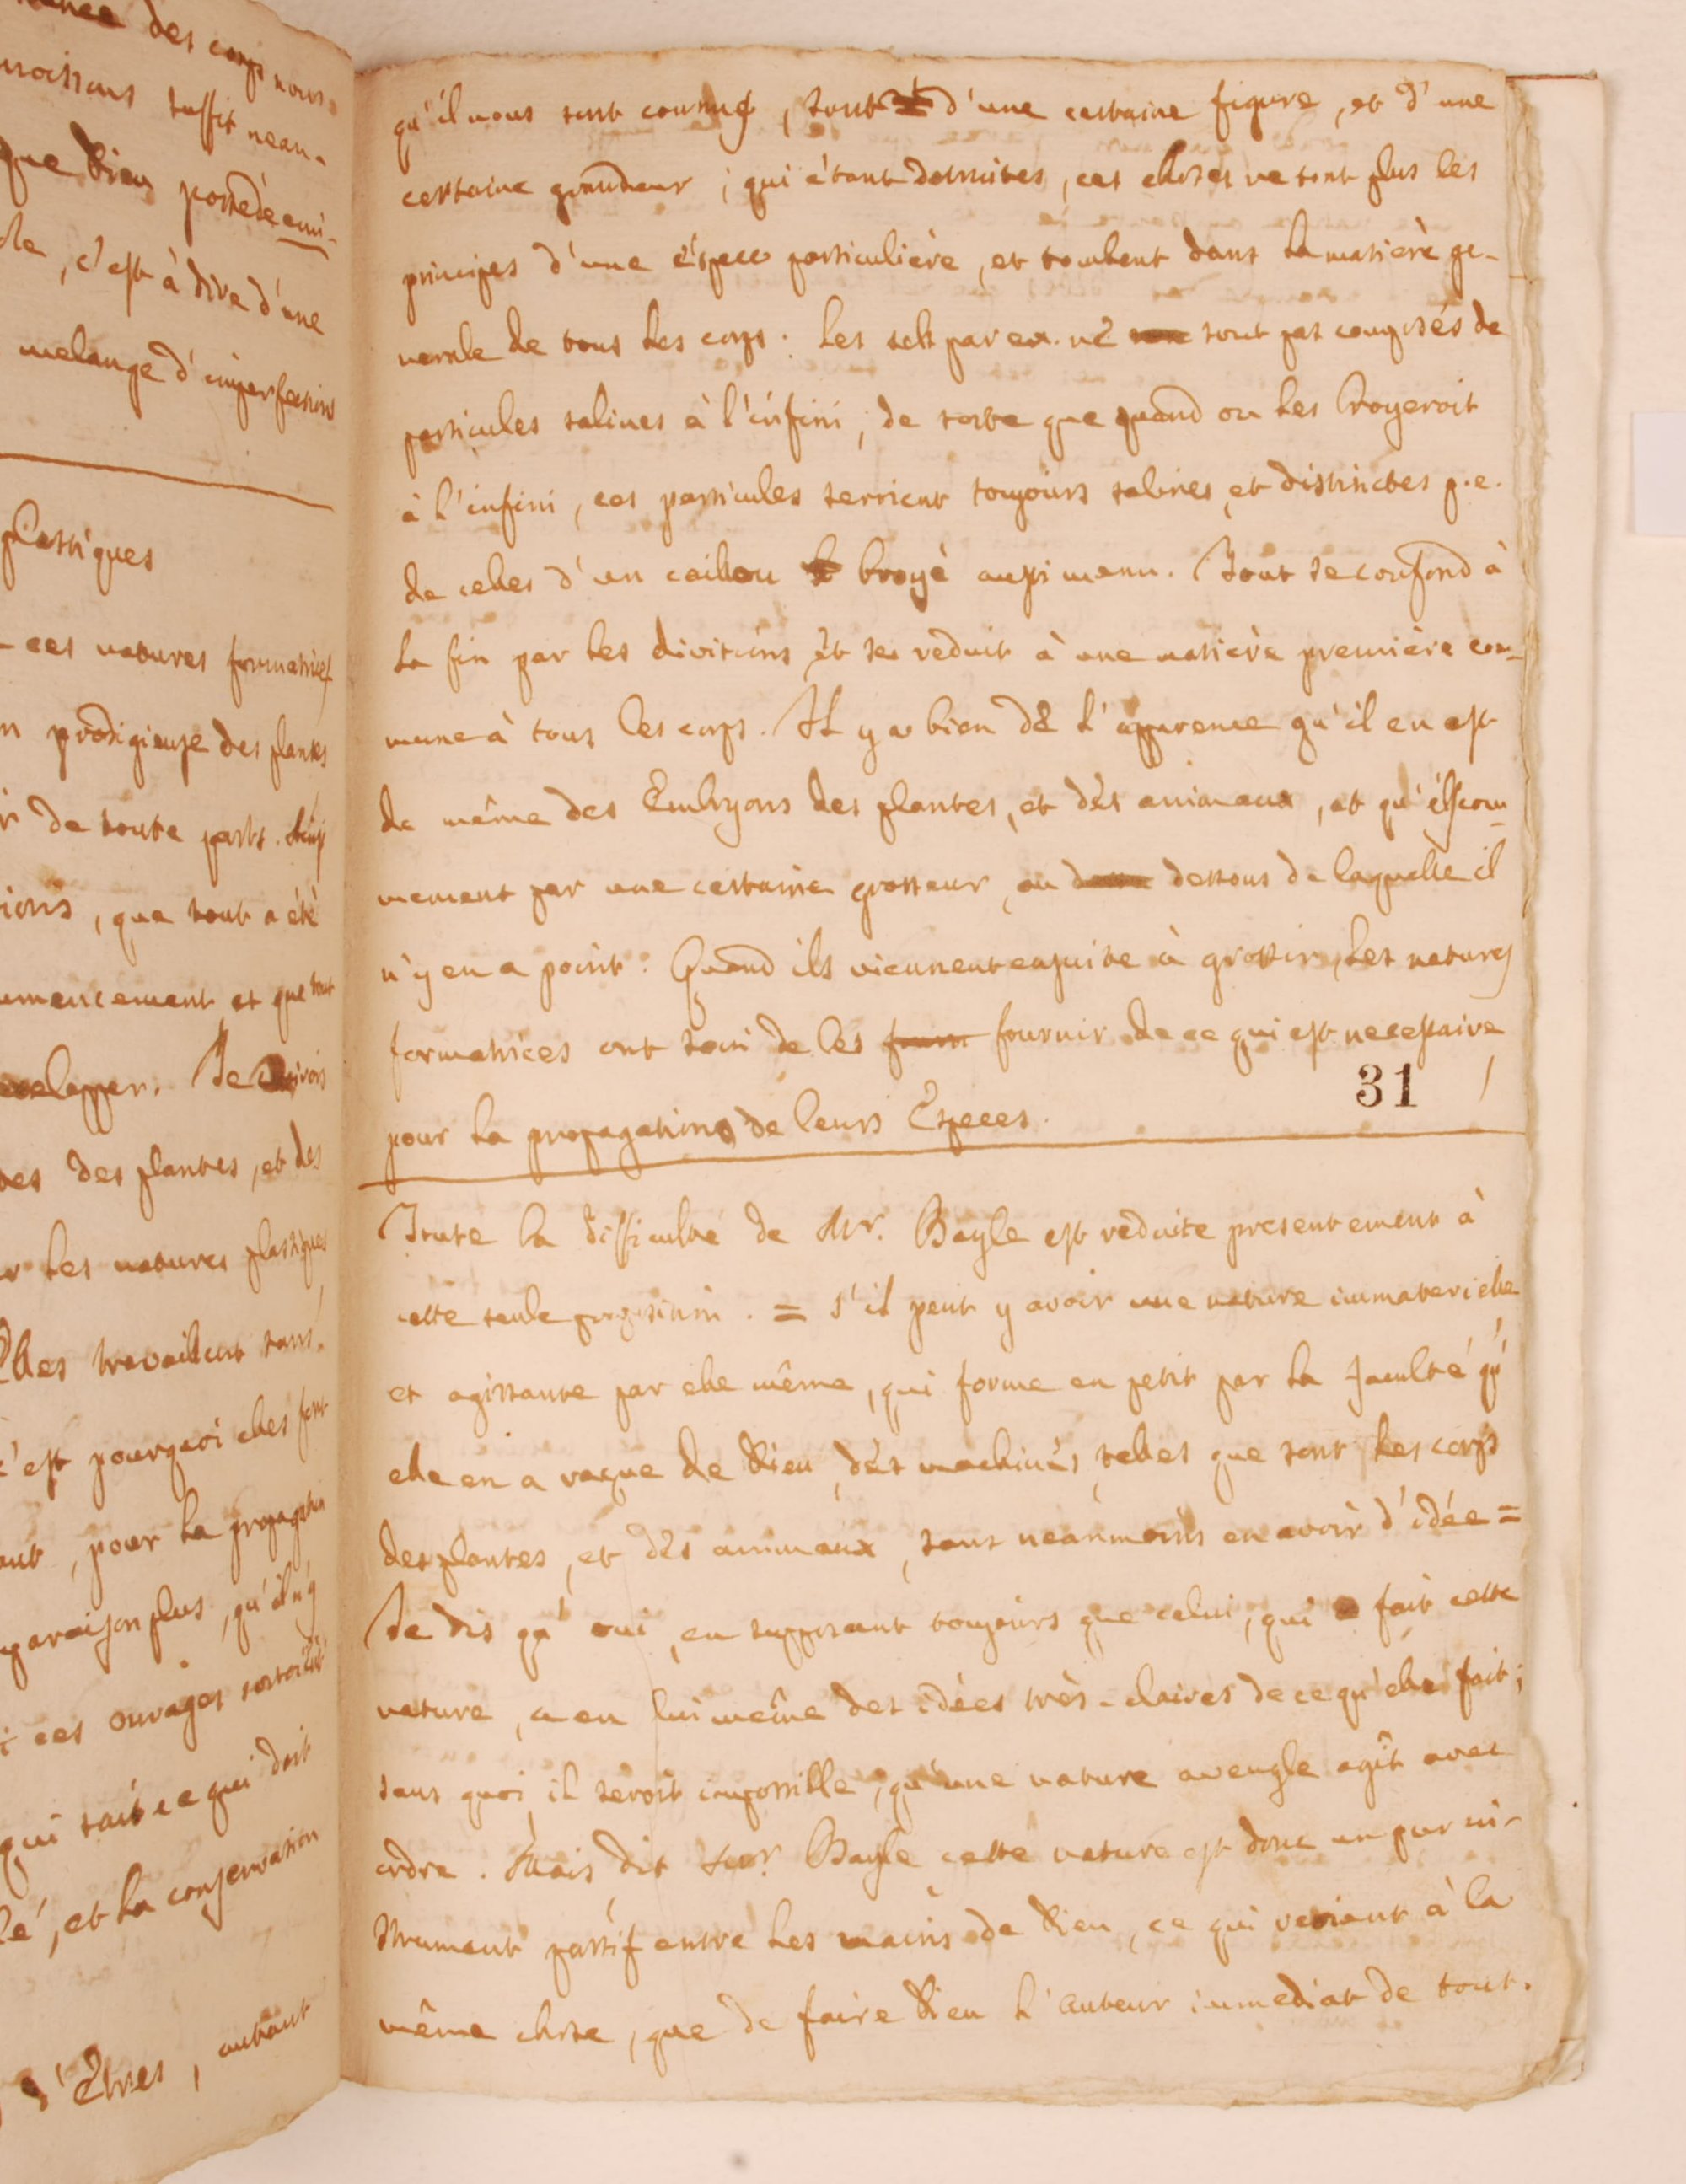 des corps nous
suffit nean-
que Dieu possède emi-
, c'est à dire d'une
melange d'imperfections
plastiques
ces natures formatrices
prodigieuse des plantes
de toute parts.
, que tout a été
et que tout
Je
des plantes, et des
les natures plastiques
Elles travaillent sans
c'est pourquoi elles sont
, pour la propagation
plus, qu'il n'y
ces ouvages sortoient
qui sait ce qui doit
, et la conservation
d'Etres, autant
qu'il nous sont connus, sont d'une certaine figure, et d'une
certaine grandeur ; qui étant detruites, ces choses ne sont plus les
principes d'une éspece particulière, et tombent dans la matière ge-
nerale de tous les corps. Les sels par ex. ne sont pas composés de
particules salines à l'infini, de sorte que quand on les broyeroit
à l'infini, ces particules seroient toujours salines, et distinctes p. e.
de celles d'un caillou broyé aussi menu. Tout se confond à
la fin par les divisions et se reduit à une matière première com-
mune à tous les corps. Il y a bien de l'apparence qu'il en est
de même des Embryons des plantes, et des animaux, et qu'ils com-
mencent par une certaine grosseur, au dessous de laquelle il
n'y en a point. Quand ils viennent ensuite à grossir, les natures
formatrices ont soin de les fournir de ce qui est necessaire
pour la propagation de leurs Especes.
31
Toute la difficulté de Mr. Bayle est reduite presentement à
cette seule proposition. = s'il peut y avoir une nature immaterielle
et agissante par elle même, qui forme en petit par la faculté qu'
elle en a reçue de Dieu, des machines, telles que sont les corps
des plantes, et des animaux, sans neanmoins en avoir d'idée =
Je dis qu'oui, en supposant toujours que celui, qui a fait cette
nature, a en lui même des idées très-claires de ce qu'elle fait ;
sans quoi, il seroit impossible, qu'une nature aveugle agît avec
ordre. Mais dit Mr. Bayle cette nature est donc un pur in-
strument passif entre les mains de Dieu, ce qui revient à la
même chose, que de faire Dieu l'auteur immediat de tout.